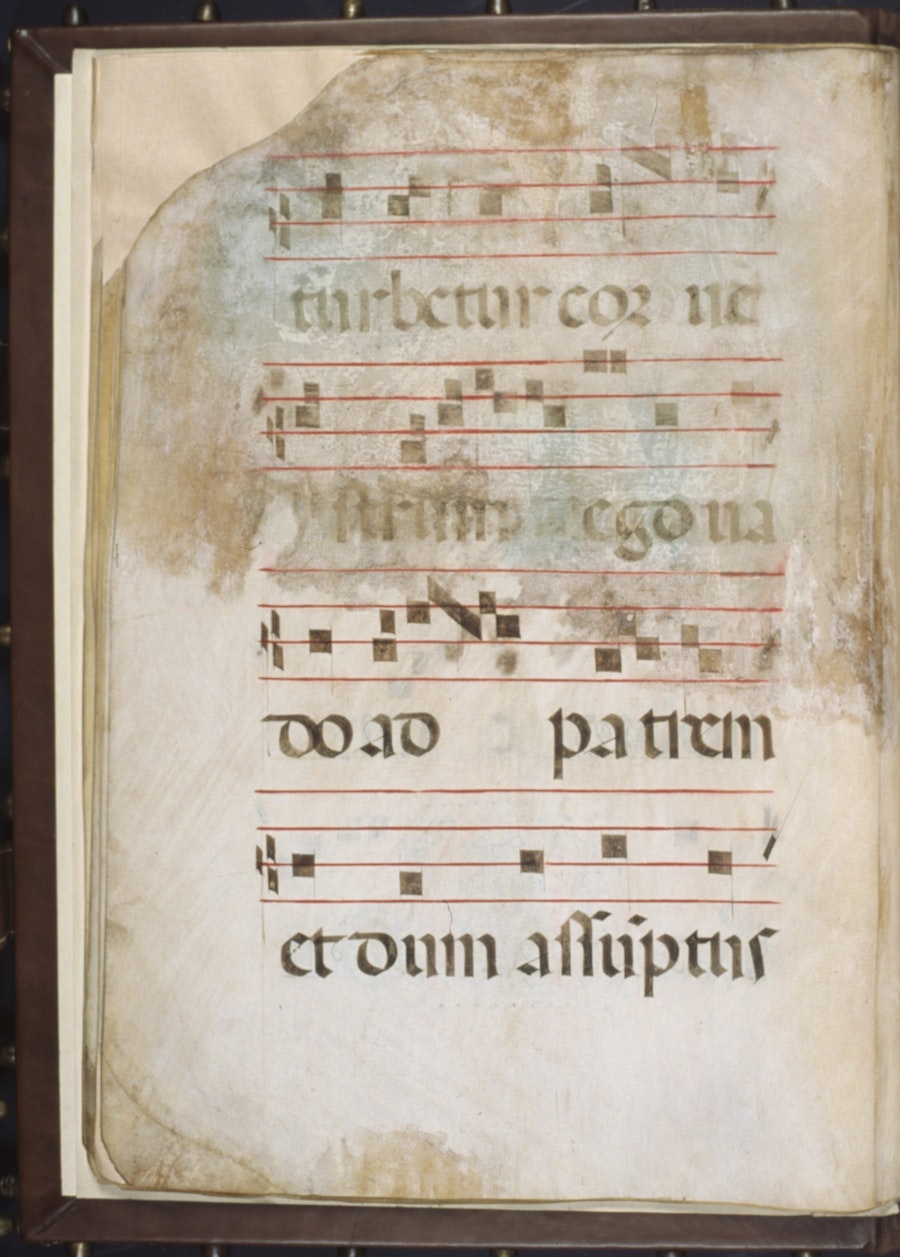 turbetur cor ve
strum ego va
do ad patrem
et dum assūptus